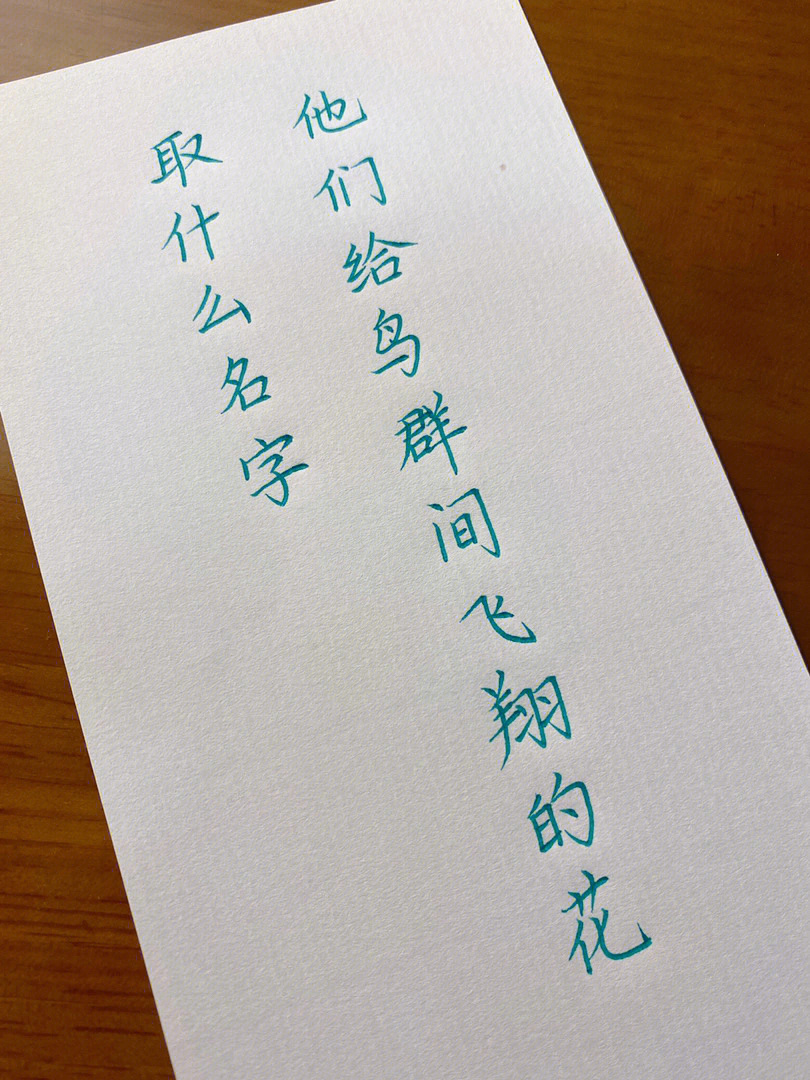 他们给鸟群间飞翔的花
取什么名字